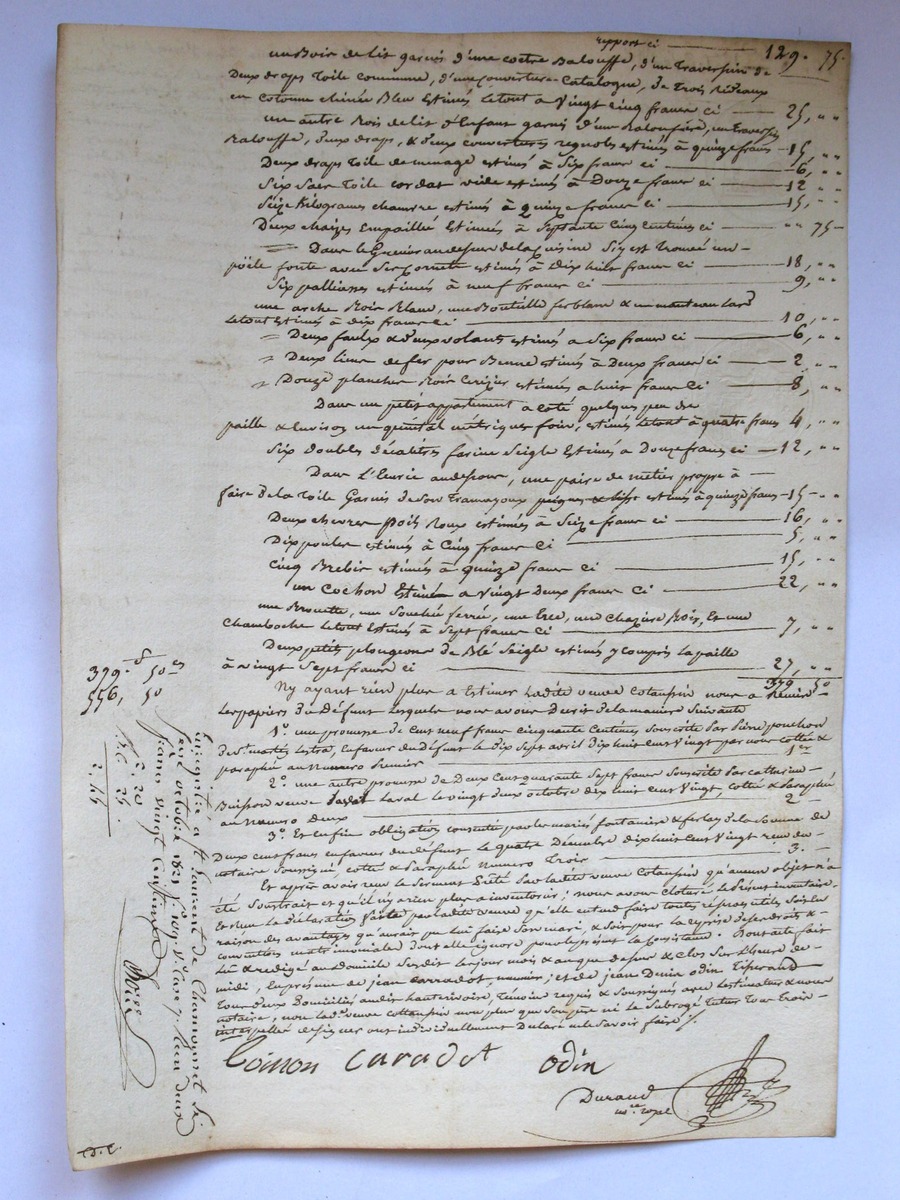 report ci 129. 75.
un Bois de lit garni d'une coetre Balouffe, d'un Traversin de
Deux draps Toile commune, d'une couverture Catalogne, de Trois Rideaux
en cotonne chinée Bleu Estimés le tout a Vingt cinq francs ci 25, " "
un autre Bois de lit d'Enfant garni d'un Baloufière, un Traversin
Balouffe, deux draps, & deux couvertures estimés à quinze francs 15, " "
Deux draps Toile de menage estimés à Six francs ci 6, " "
Six Sacs Toile cordat vide estimés à Douze francs ci 12 " "
Seize Kilogrames chanvre estimés à quinze francs ci 15, " "
Deux chaizes Empaillé Estimées à Septante Cinq Centimes ci " " 75
Dans le Grenier au dessus de la cuisine S'y est trouvé un
poële fonte avec ses cornets estimés à dix huit francs ci 18, " "
Six palliasses estimés à neuf francs ci 9, " "
une arche Bois Blanc, une Bouteille fer blanc & un manteau
le tout Estimés à dix francs ci 10, " "
= Deux faulx & deux volants estimés a Six francs ci 6, " "
= Deux liens de fer pour Benne estimés à Deux francs ci 2, " "
= Douze planches Bois Cerizier estimées a huit francs Ci 8, " "
Dans un petit appartement a coté quelque peu de
paille & Environ un quintal métrique foin, estimés le tout à quatre francs 4, " "
Six doubles décalitres farine Seigle Estimés à Douze francs ci 12, " "
Dans L'Ecurie au dessous, une paire de métier propre à
faire de la Toile Garnis de son peignes & lisse estimés à quinze francs 15 " "
Deux chevres Poils Roux estimés à Seize francs ci 16, " "
Dix poules estimés à Cinq francs Ci 5, " "
Cinq Brebis estimés à quinze francs ci 15, " "
un Cochon Estimé a Vingt Deux francs Ci 22, " "
une Brouette, une ferré, une Bois, Et une
le tout Estimés à Sept francs Ci 7, " "
Deux petits plongeons de Blé Seigle estimés y compris la paille
à vingt Sept francs ci 27, " "
379 50
N'y ayant rien plus a Estimer Ladite veuve nous a Remis
les papiers du Défunt lesquels nous avons Decrit de la maniere Suivante
1°. une promesse de Cent neuf francs Cinquante Centimes Souscrite Par
de St. martin Lestra, en faveur du défunt le dix Sept avril dix huit cent Vingt par nous cottée &
paraphée au Numero premier 1er
2°. une autre promesse de Deux Cent quarante Sept francs Souscrite Par catherine
Buisson veuve Laval le vingt deux octobre dix huit cent Vingt, cotté & Paraphée
au Numero deux 2
3°. Et Enfin obligation consentie par les mariés fontanière & de la Somme de
Deux cent francs en faveur du défunt le quatre Décembre dix huit cent Vingt reçu du
notaire Soussigné, cotté & Paraphé Numero Trois 3.
Et après avoir reçu le Serment Prêté Par ladite veuve qu'aucun objet n'a
été Soustrait et qu'il n'y a rien plus a inventorier; nous avons Cloturé le Présent inventaire.
Et sur la Déclaration faite par ladite veuve qu'elle entend faire toutes réserves utiles Soit en
raison des avantages qu'aurait pu lui faire Son mari, & Soit pour la reprise de ses droits &
conventions matrimoniale dont elle ignore pour le présent la Consistance. Dont acte fait
Lu & redigé au Domicile Susdit les jour mois & an que dessus & Clos Sur l'heure de
midi, En présence de jean carradot, meunier, et de jean Denis odin Tisserand
Tous deux Domiciliés audit hauterivoire, Témoins requis & Soussignés avec l'estimateur & nous
notaire, non ladte. veuve non plus que son père ni le Subrogé tuteur tous Trois
interpellés de signer ont individuellement Declaré ne le Savoir faire ./.
Coinon caradot odin
Durand
nre. royal
379.f 50ces
556, 50
2. 20
25
2. 45
Enregistré a St. Laurent de Chamousset le
octobre 1821 Reçu deux
francs vingt Centimes